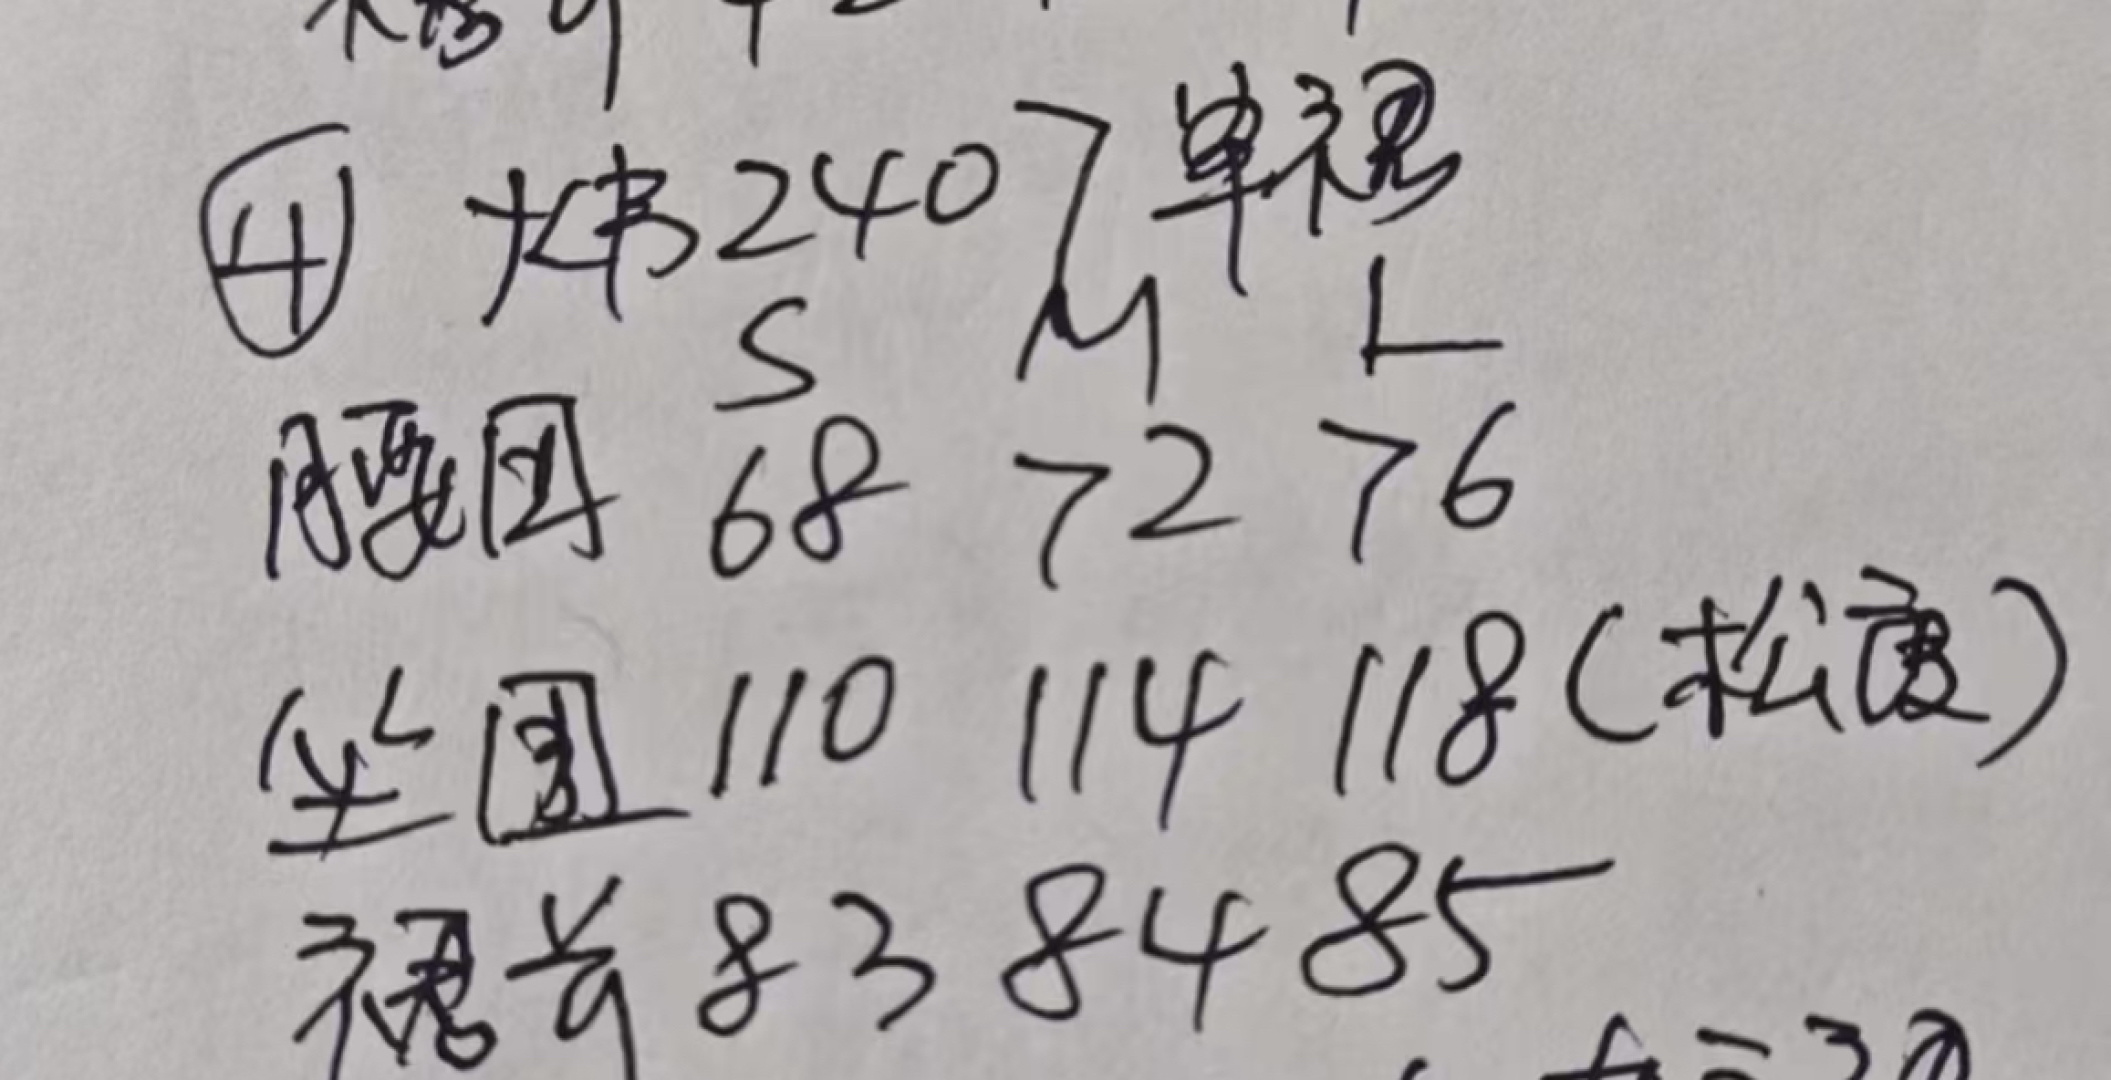 ④ 炜2407 单裙
S M L
腰围 68 72 76
坐围 110 114 118 (松度)
裙长 83 84 85